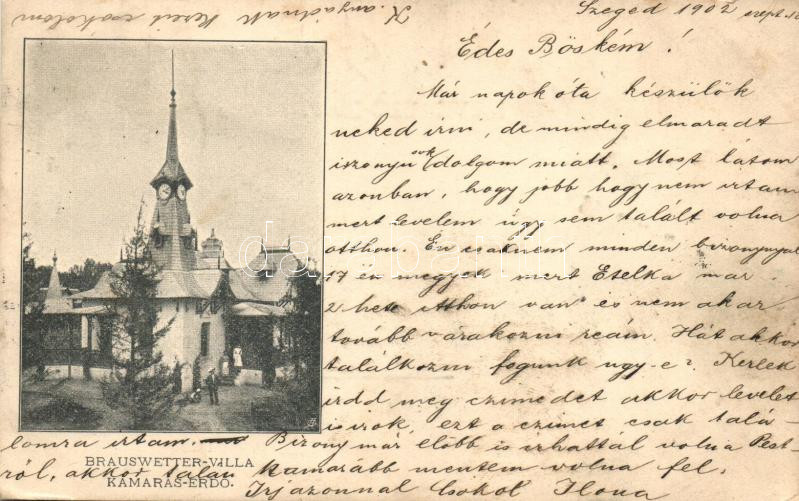 K. anyádnak kezeit csókolom
Szeged 1902 szept. 12
Édes Böském!
Már napok óta készülök
neked irni, de mindig elmaradt
iszonyu sok dolgom miatt. Most látom
azonban, hogy jobb hogy nem irtam
mert levelem úgy sem talált volna
otthon. Én csaknem minden bizonynyal
17 én megyek mert Etelka már
2 hete itthon van és nem akar
tovább várakozni reám. Hát akkor
találkozni fogunk ugy-e? Kérlek
irdd meg czimedet akkor levelet
is irok, ezt a czimet csak talá-
lomra irtam. Bizony már előbb is irhattál volna Pest-
ről, akkor talán kamarább mentem volna fel.
Irj azonnal Csókol Ilona
BRAUSWETTER-VILLA
KAMARÁS-ERDŐ.
darabanth